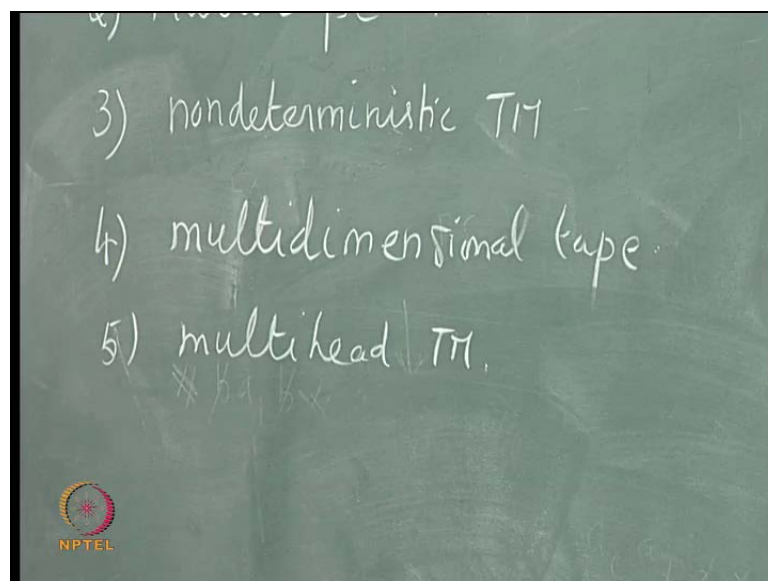 3) nondeterministic TM
4) multidimensional tape.
5) multihead TM.
NPTEL